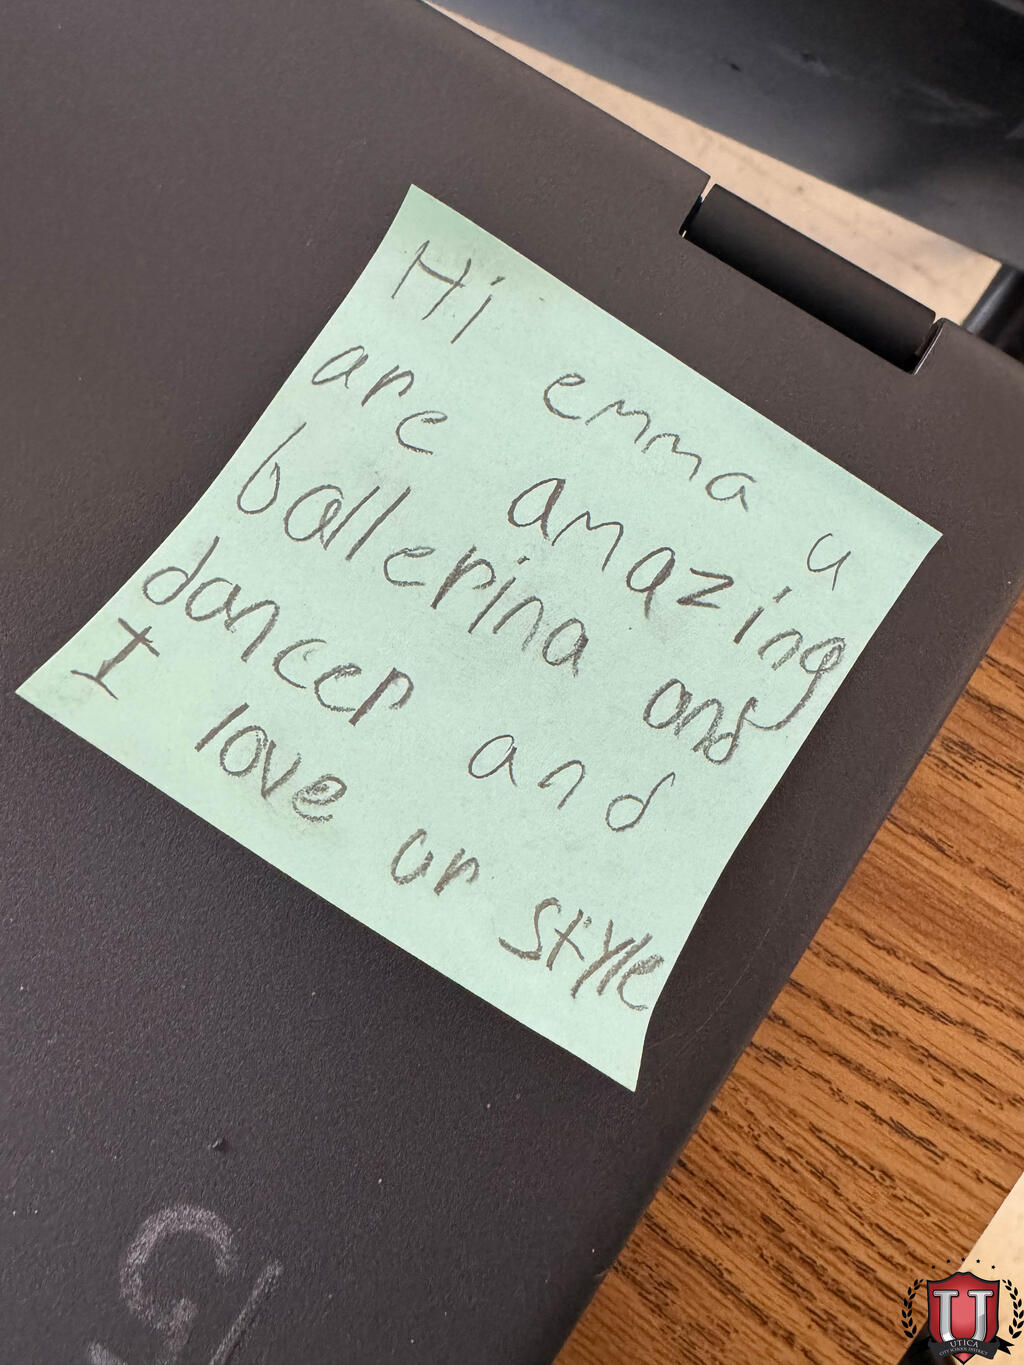 Hi emma u
are amazing
ballerina and
dancer and
I love ur style
G
UTICA
CITY SCHOOL DISTRICT